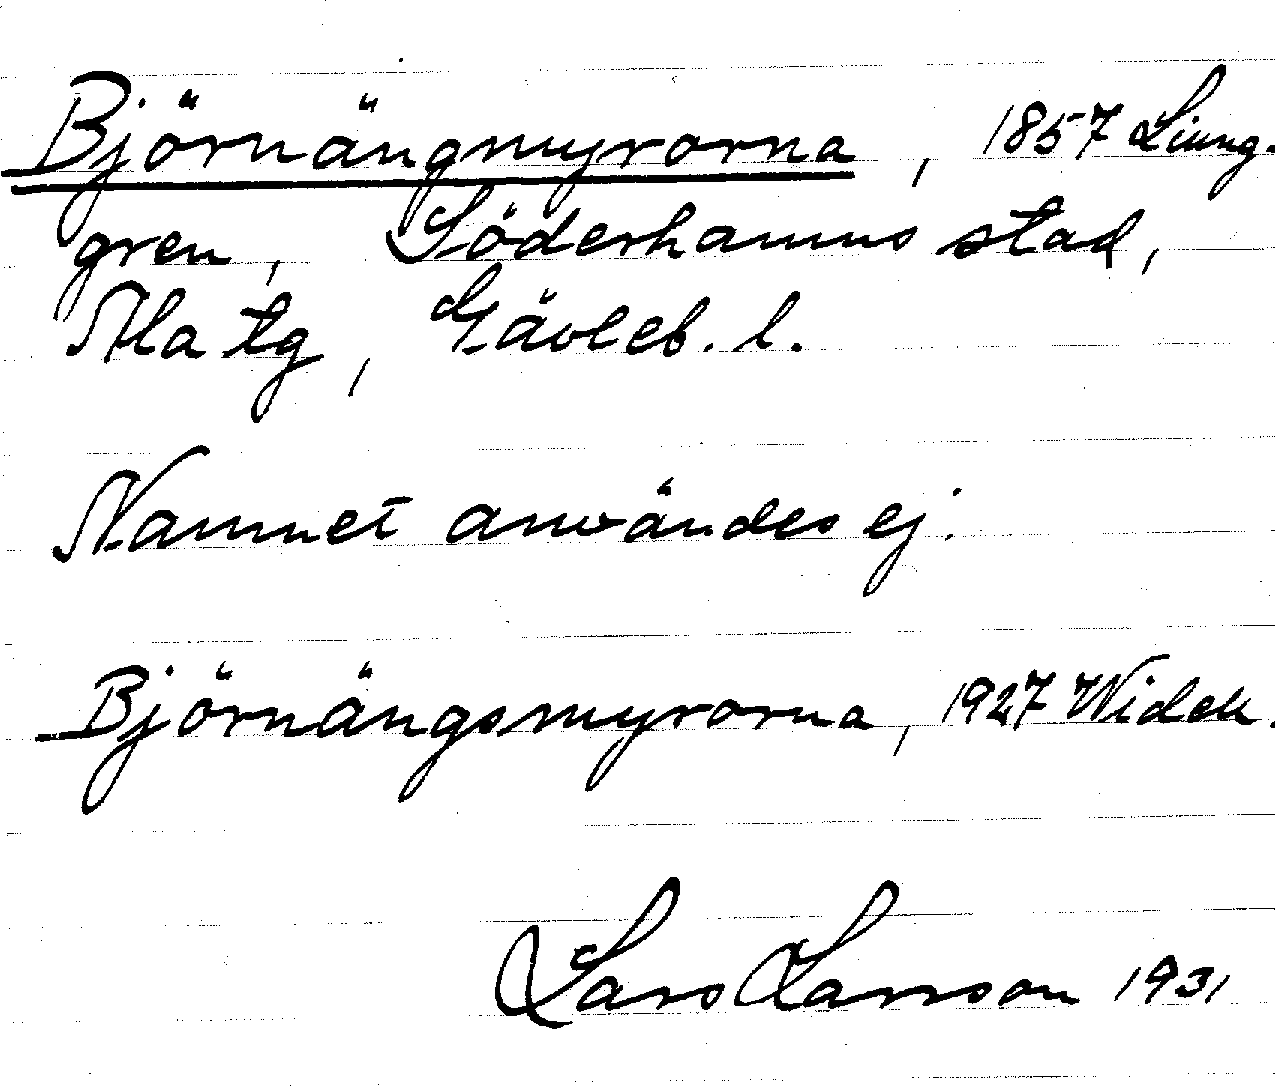 Björnängmyrorna, 1857 Ljung-
gren, Söderhamns stad,
Ala tg, Gävleb. l.
Namnet användes ej.
Björnängsmyrorna, 1927 Widek.
Lars Larsson 1931